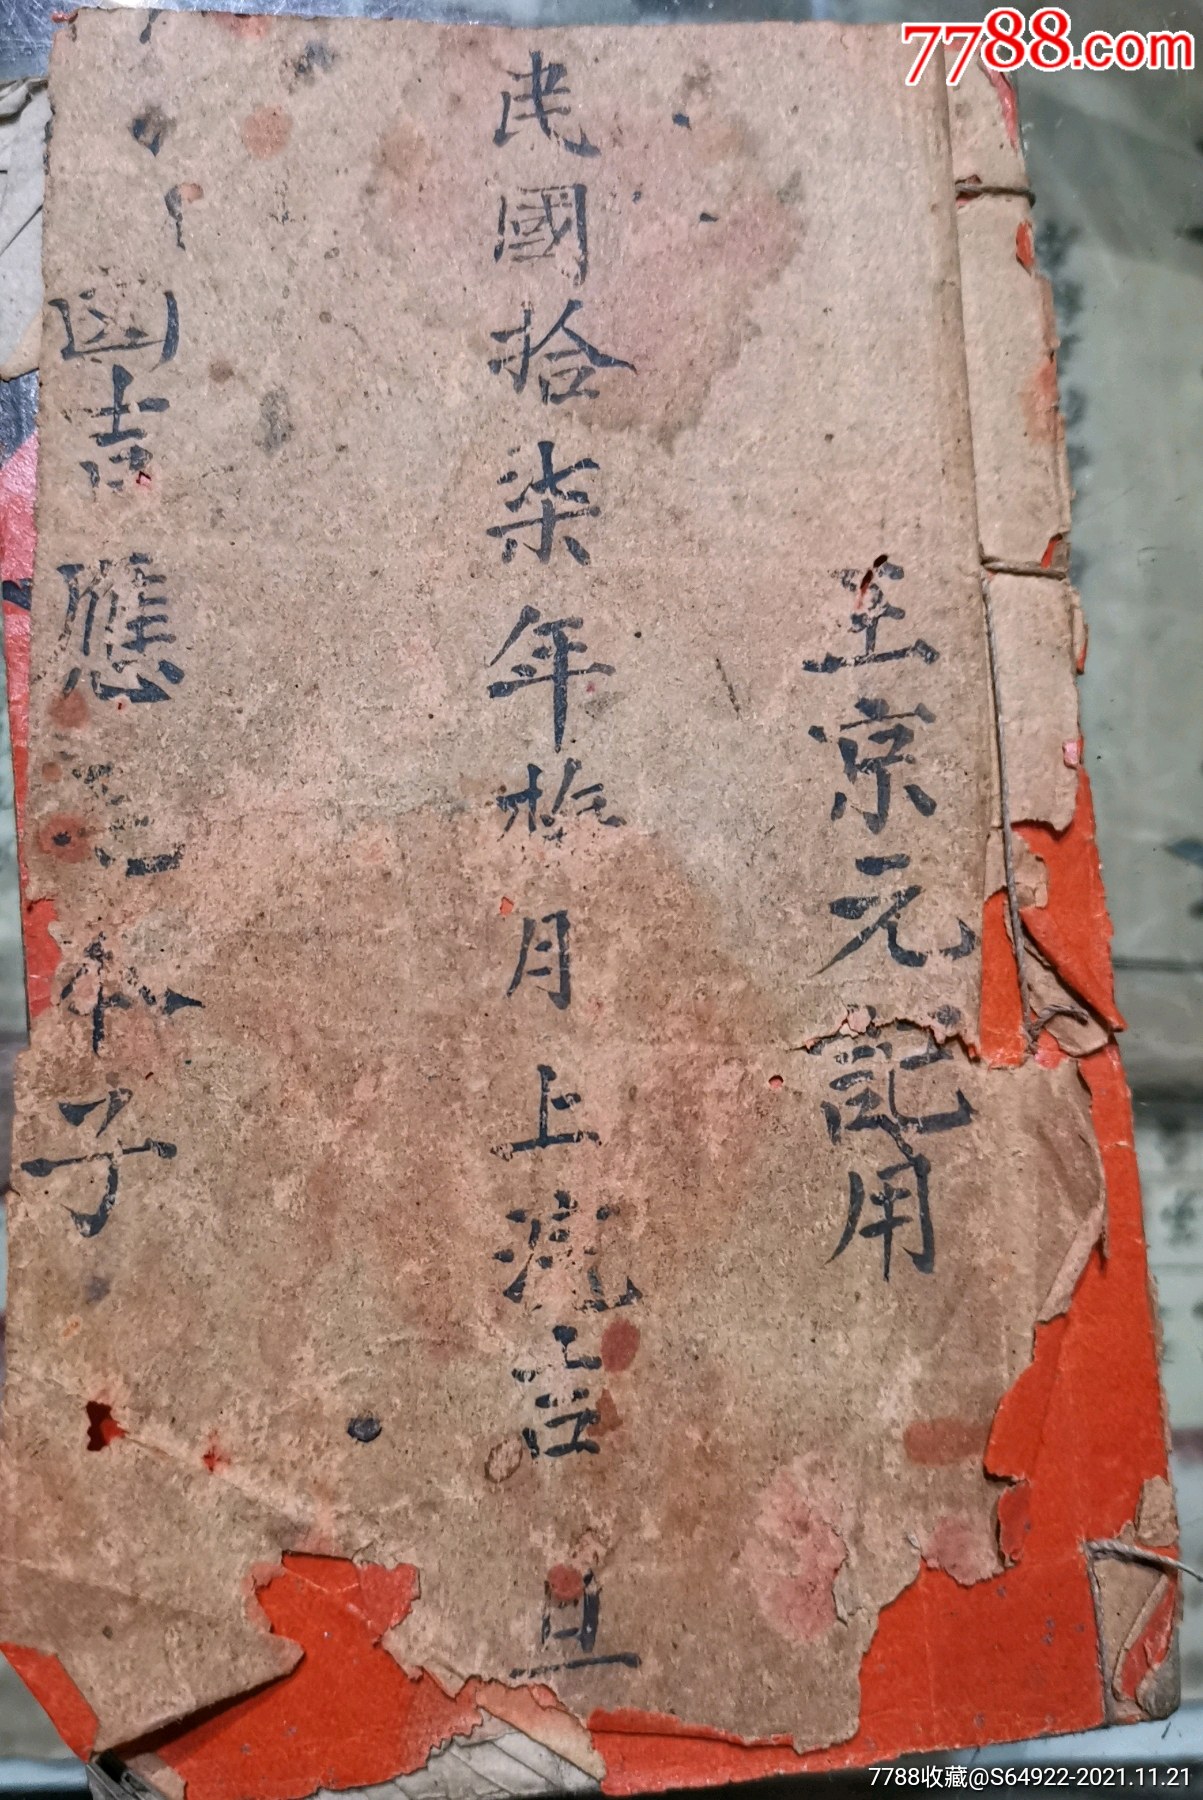 7788.com
王京元記用
民國拾柒年拾月上浣吉旦
凶吉應元本子
7788收藏@S64922-2021.11.21